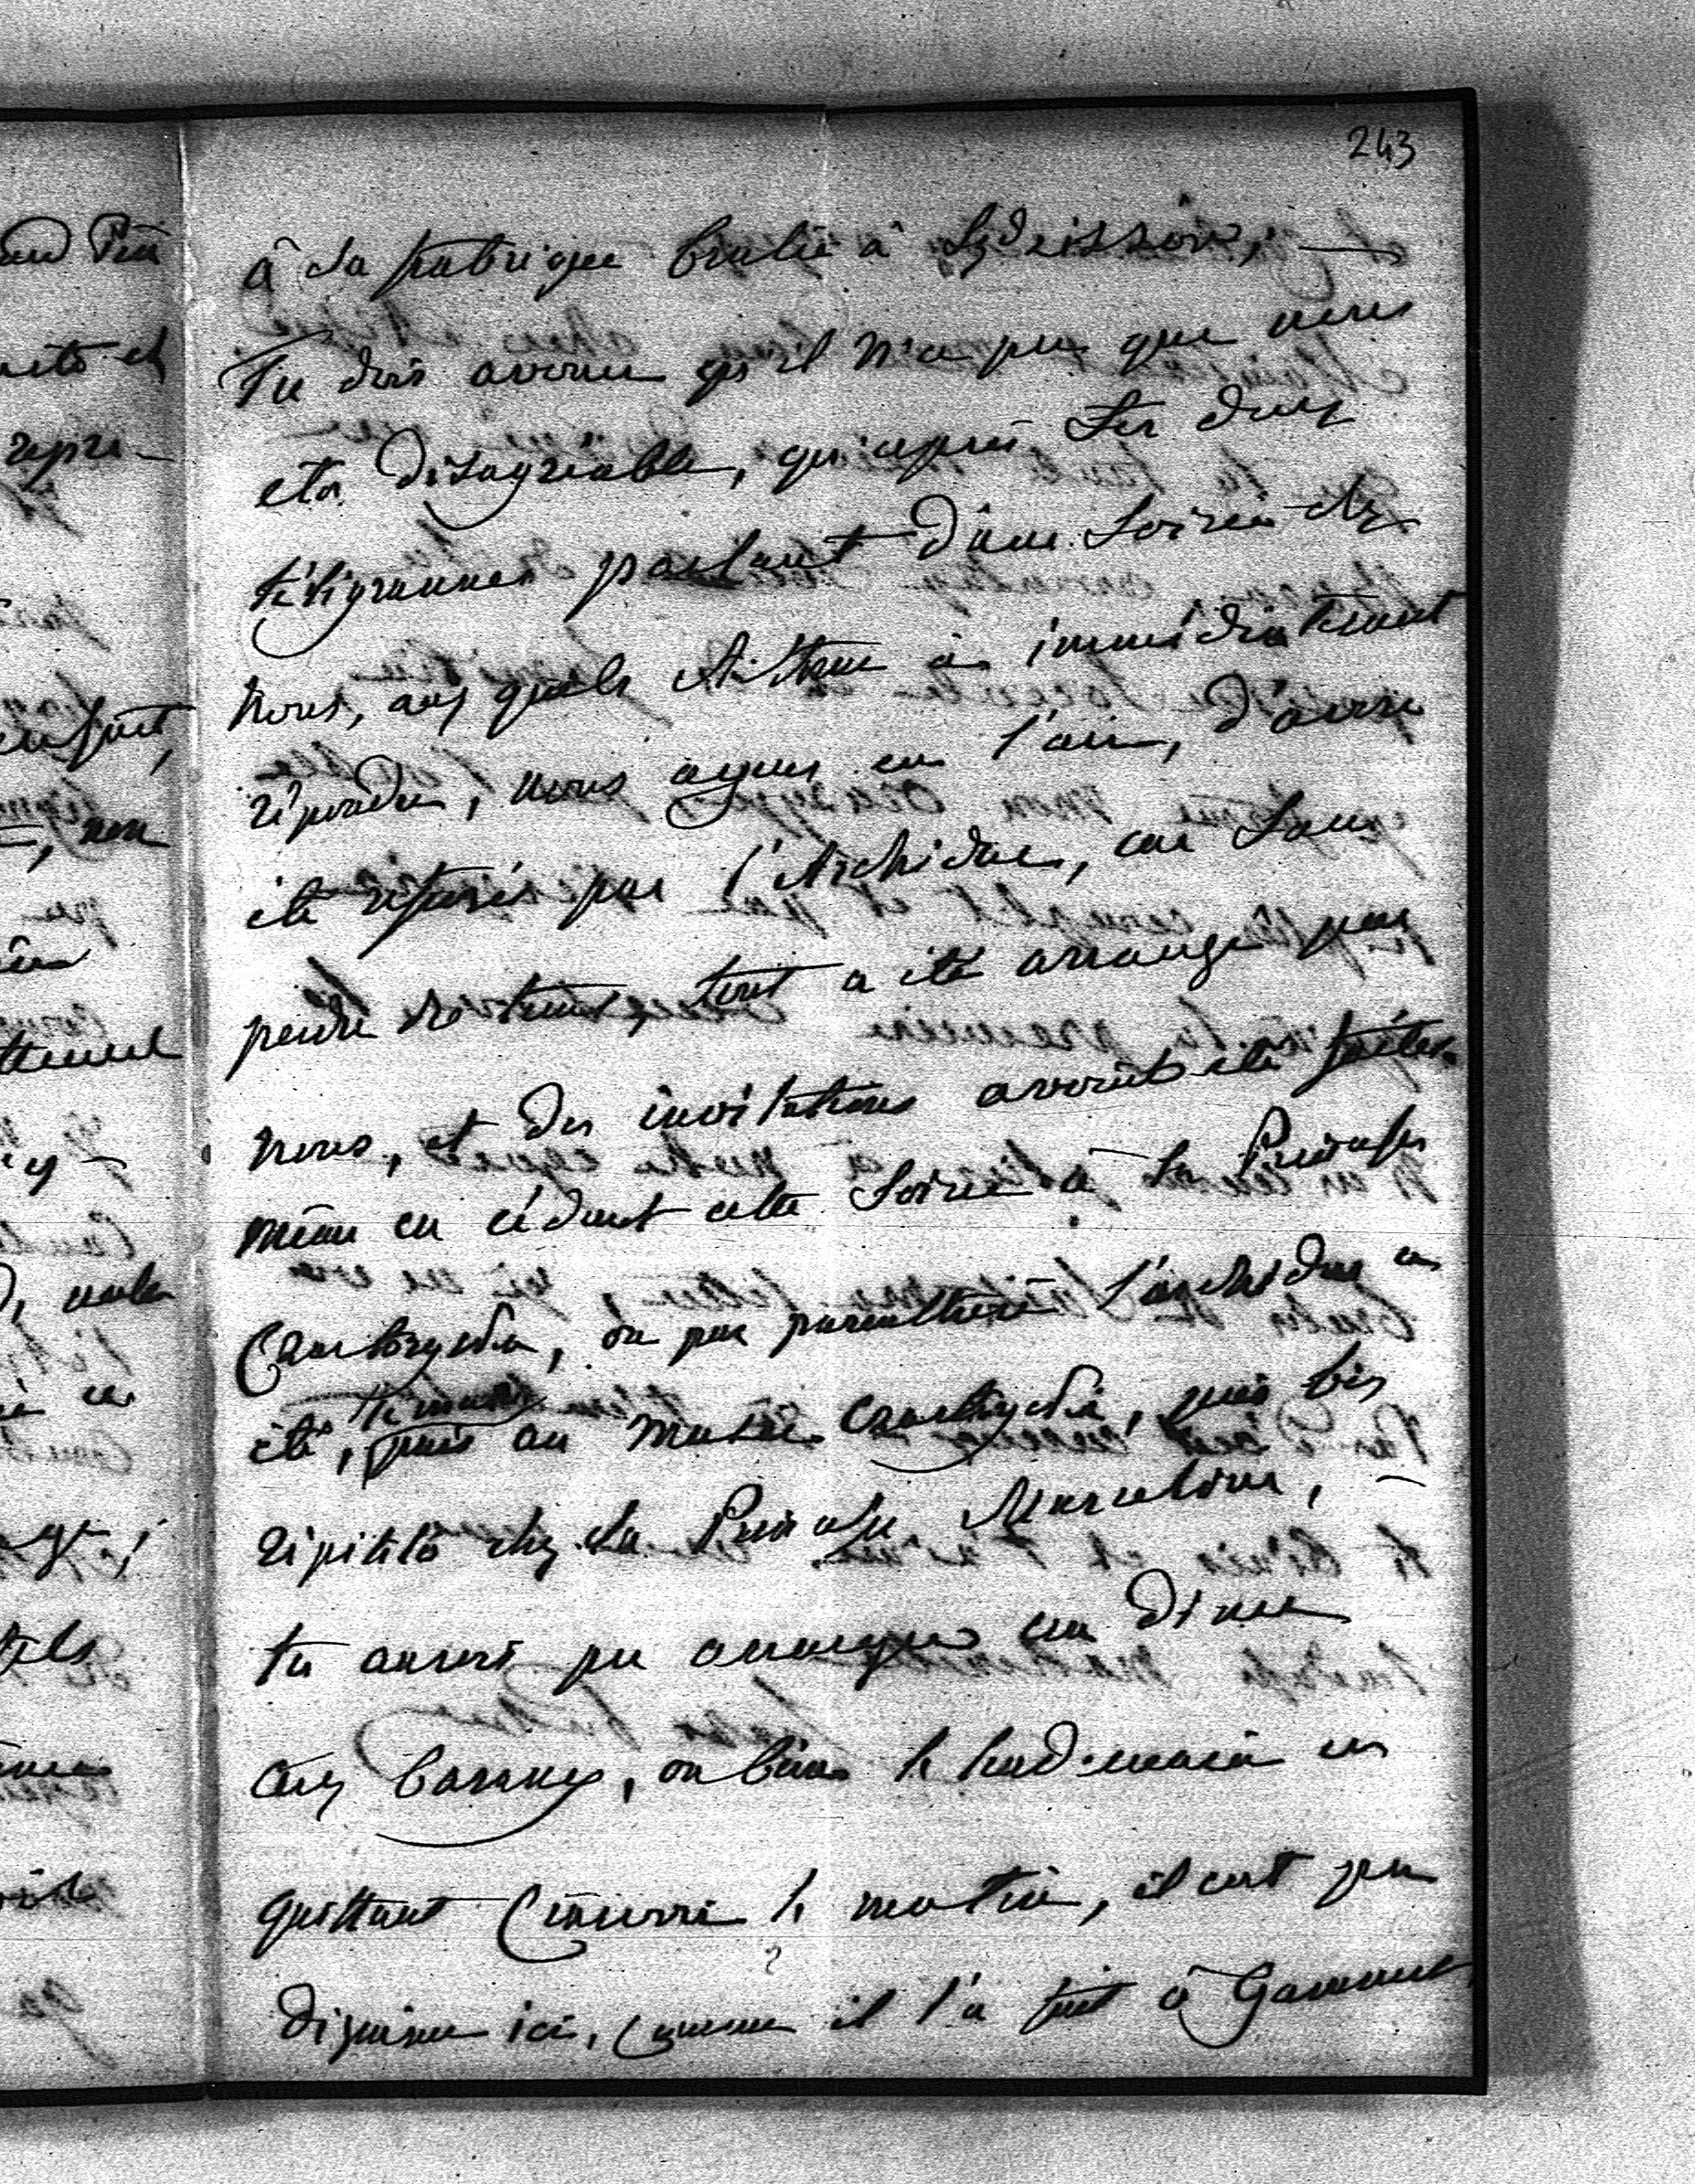 243
à sa fabrique brulée à
Tu dois avouer qu'il n'a pu que nous
etre disagréable, qu'après ses deux
télégrammes parlant d'une soirée chez
nous, aux quels Arthur a immédiatement
répondu, nous ayons eu l'air, d'avoir
été refusés par l'Archiduc, car sans
perdre de tems, tout a été arrangé par
nous, et des invitations avoient été faites.
même en cédant cette soirée à la Princesse
Czartoryska, où par parenthèse l'archiduc a
été, puis au musée Czartoryski, puis bis
répitito chez la Princesse Marceline, –
tu aurois pu arranger un diner
chez Barany, ou bien le lendemain en
quittant Cracovie le matin, il eut pu
dejeuner ici, comme il l'a fait à